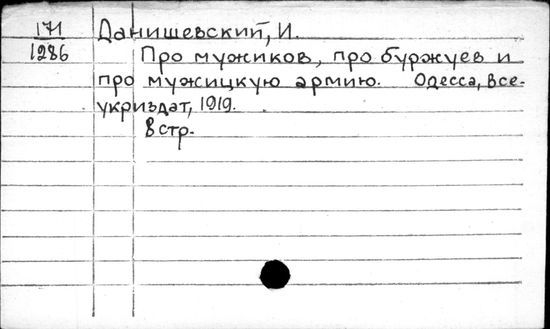 171 Данишевский, И.
1286 Про мужиков, про буржуев и
про мужицкую армию. Одесса, Все-
укриздат, 1919.
8 стр.